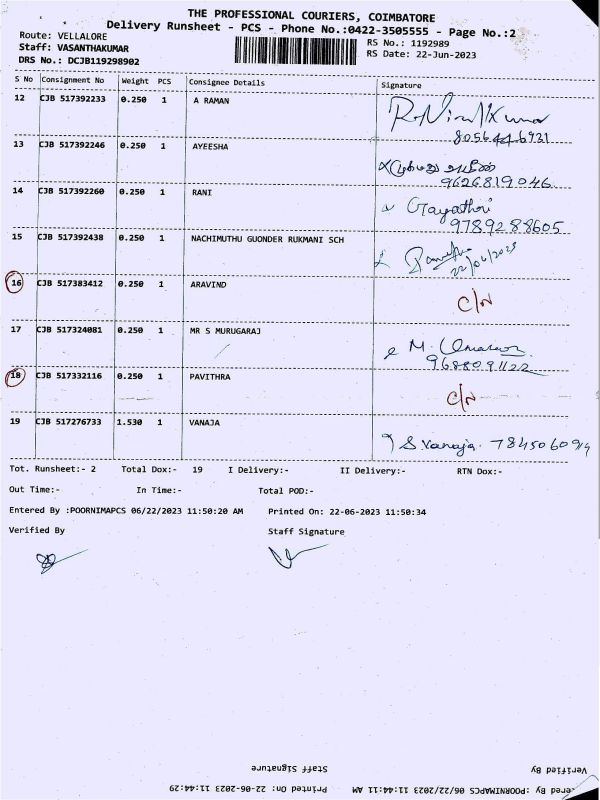 THE PROFESSIONAL COURIERS, COIMBATORE
Delivery Runsheet - PCS - Phone No.:0422-3505555 - Page No.:2
Route: VELLALORE
Staff: VASANTHAKUMAR
DRS No.: DCJB119298902
RS No.: 1192989
RS Date: 22-Jun-2023
S No Consignment No Weight PCS Consignee Details Signature
12 CJB 517392233 0.250 1 A RAMAN
8056446931
13 CJB 517392246 0.250 1 AYEESHA
9626819046
14 CJB 517392260 0.250 1 RANI Gayathri
9789288605
15 CJB 517392438 0.250 1 NACHIMUTHU GUONDER RUKMANI SCH
22/06/2023
16 CJB 517383412 0.250 1 ARAVIND C/N
17 CJB 517324081 0.250 1 MR S MURUGARAJ
9688091122
18 CJB 517332116 0.250 1 PAVITHRA C/N
19 CJB 517276733 1.530 1 VANAJA S Vanaja. 7845060914
Tot. Runsheet:- 2 Total Dox:- 19 I Delivery:- II Delivery:- RTN Dox:-
Out Time:- In Time:- Total POD:-
Entered By :POORNIMAPCS 06/22/2023 11:50:20 AM Printed On: 22-06-2023 11:50:34
Verified By Staff Signature
Verified By Staff Signature
ered By :POORNIMAPCS 06/22/2023 11:44:11 AM Printed On: 22-06-2023 11:44:29